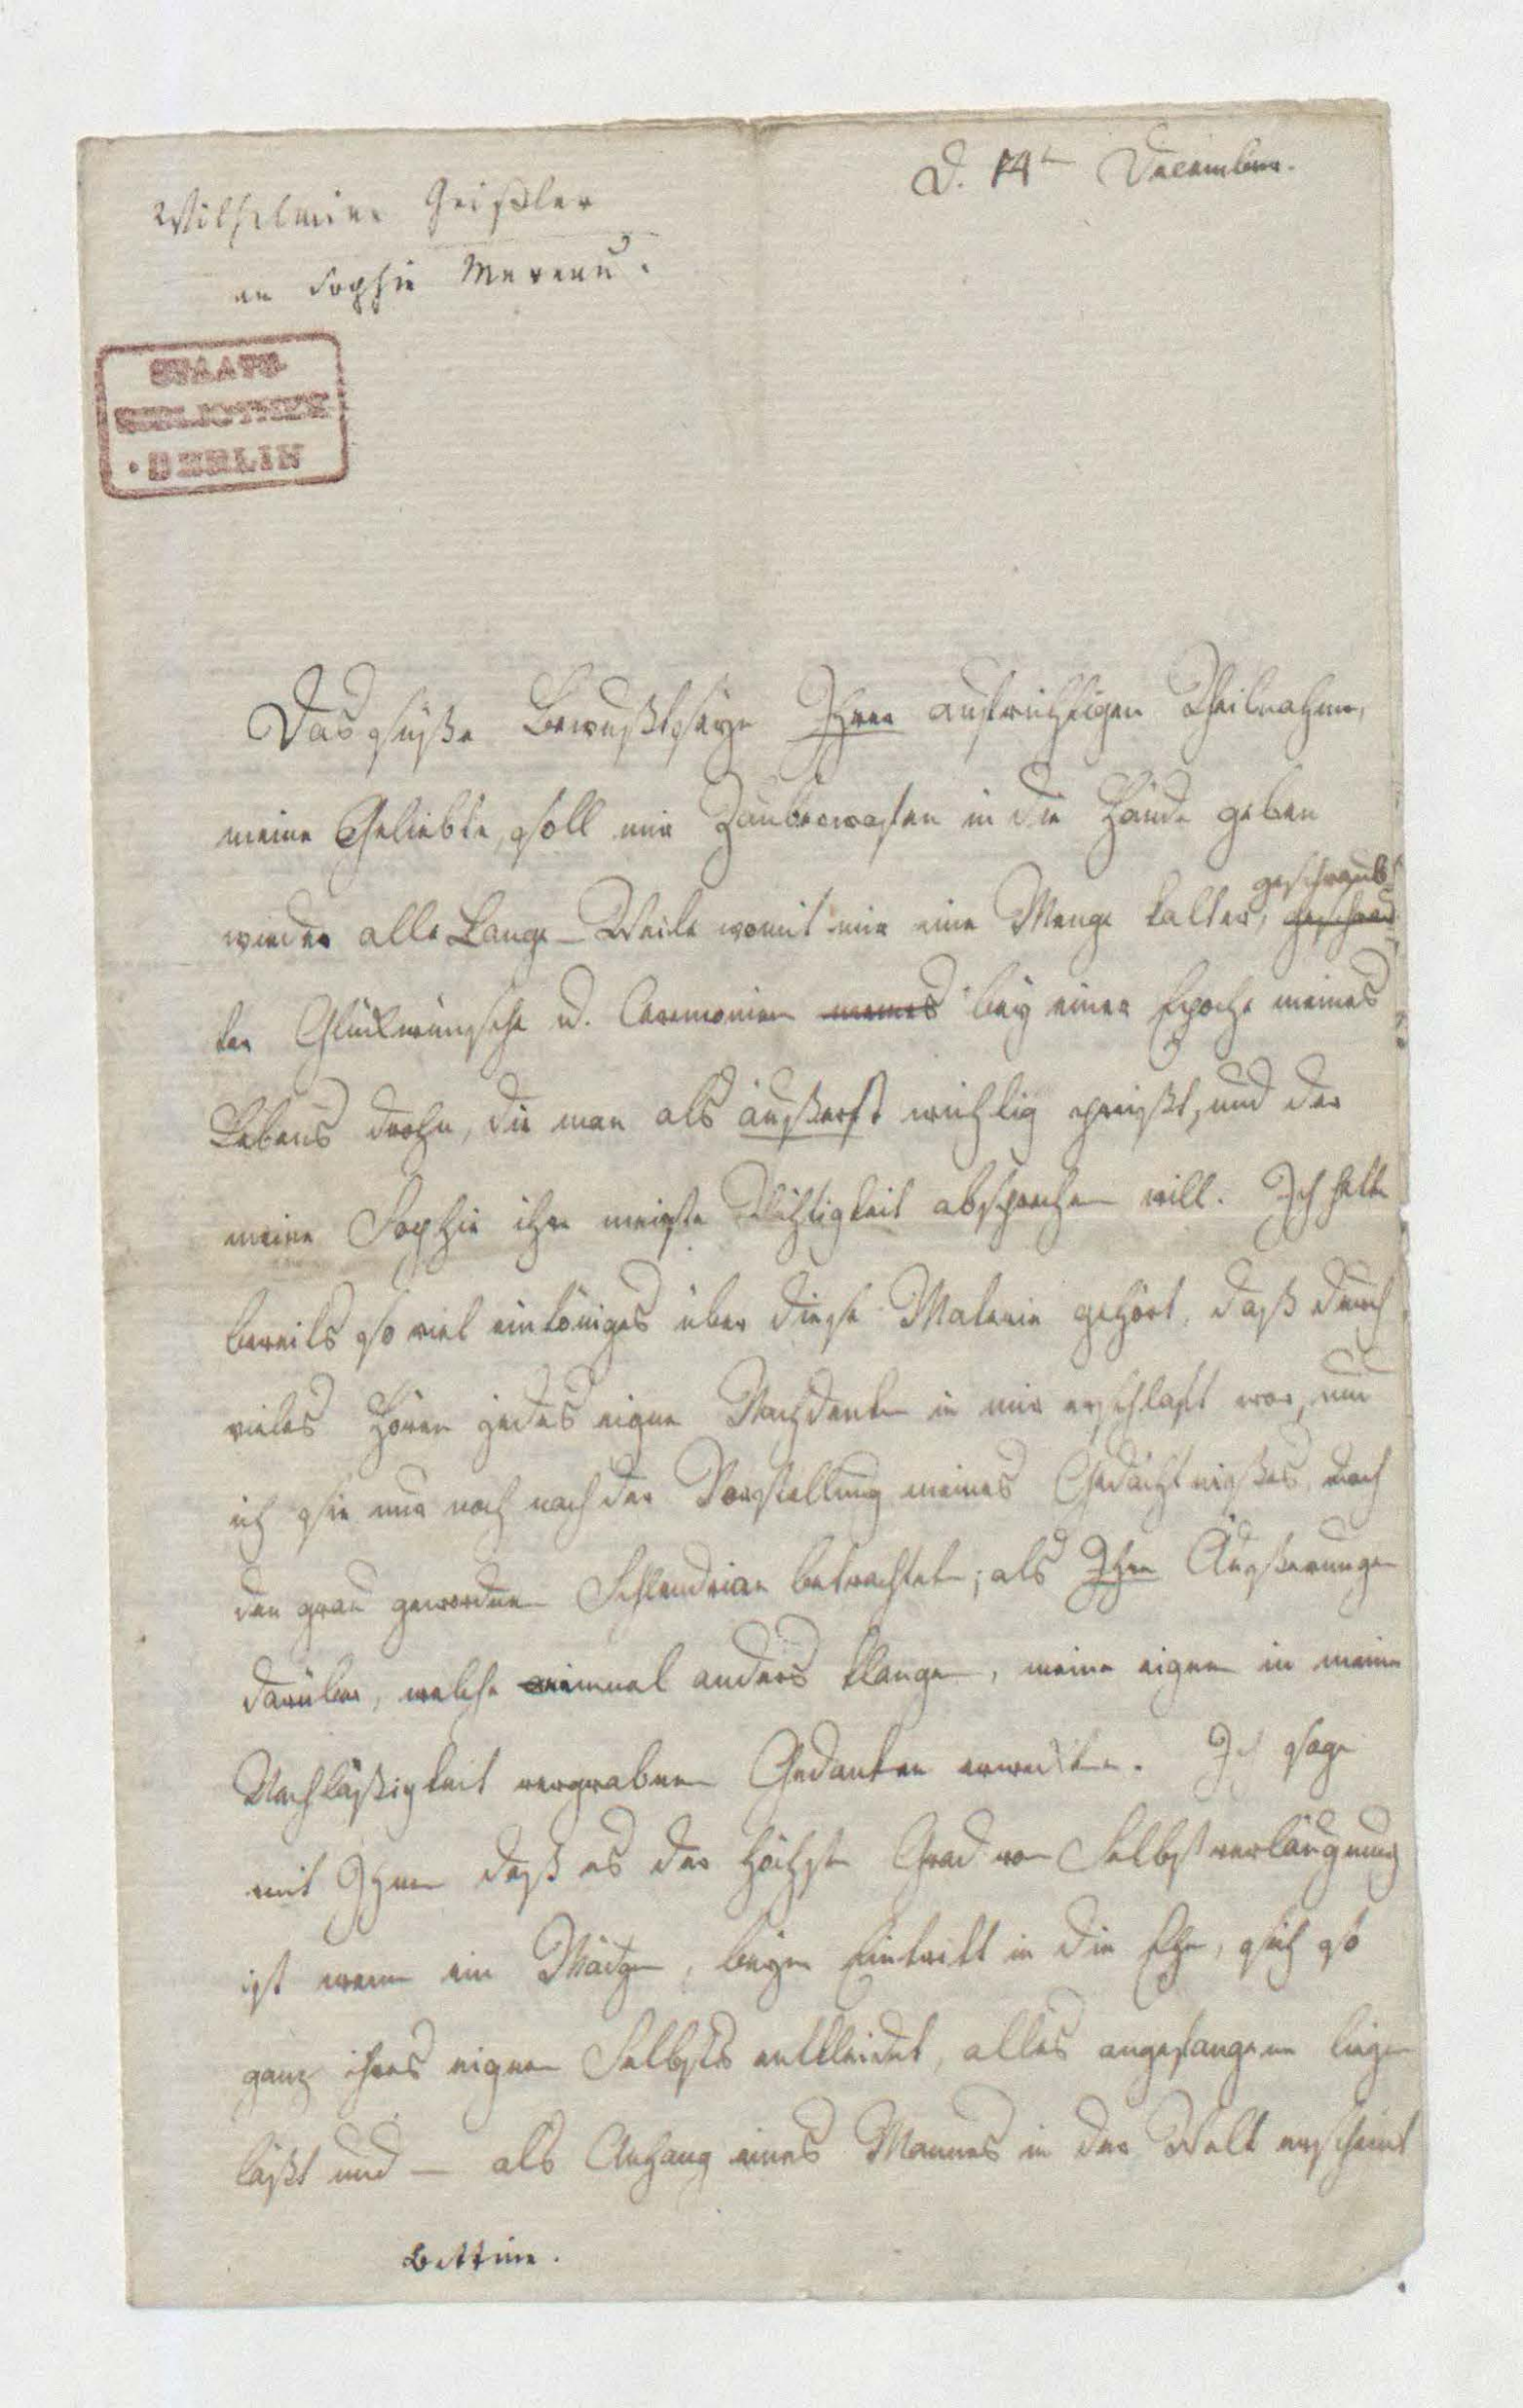 D. 14t December.
Wilhelmine Geißler
an Sophie Mereau.
STAATS
BIBLIOTHEK
• BERLIN
Das süße Bewußtseyn Ihrer aufrichtigen Theilnahme,
meine Geliebte, soll mir Zauberwafen in die Hände geben
wieder alle Lange-Weile womit mir eine Menge kalter, geschraub
ter Glückwünsche u. Ceremonien meines bey einer Epoche meines
Lebens drohn, die man als äußerst wichtig preißt, und der
meine Sophie ihre meiste Wichtigkeit absprechen will. Ich hatte
bereits so viel eintöniges über diese Materie gehört, daß durch
vieles Hören jedes eigne Nachdenken in mir erschlaft war, und
ich sie nur noch nach der Vorstellung meines Gedächtnißes, nach
den grau gewordnen Schlendrian betrachtete; als Ihre Äußerungen
darüber, welche einmal anders klangen, meine eignen in meiner
Nachläßigkeit vergrabnen Gedanken erweckten. Ich sage
mit Ihnen daß es der höchste Grad von Selbstverläugnung
ist wenn ein Mädgen, beym Eintritt in die Ehe, sich so
ganz ihres eignen Selbsts entkleidet, alles angefangene liegen
läßt und — als Anhang eines Mannes in der Welt erscheint
Bettine.